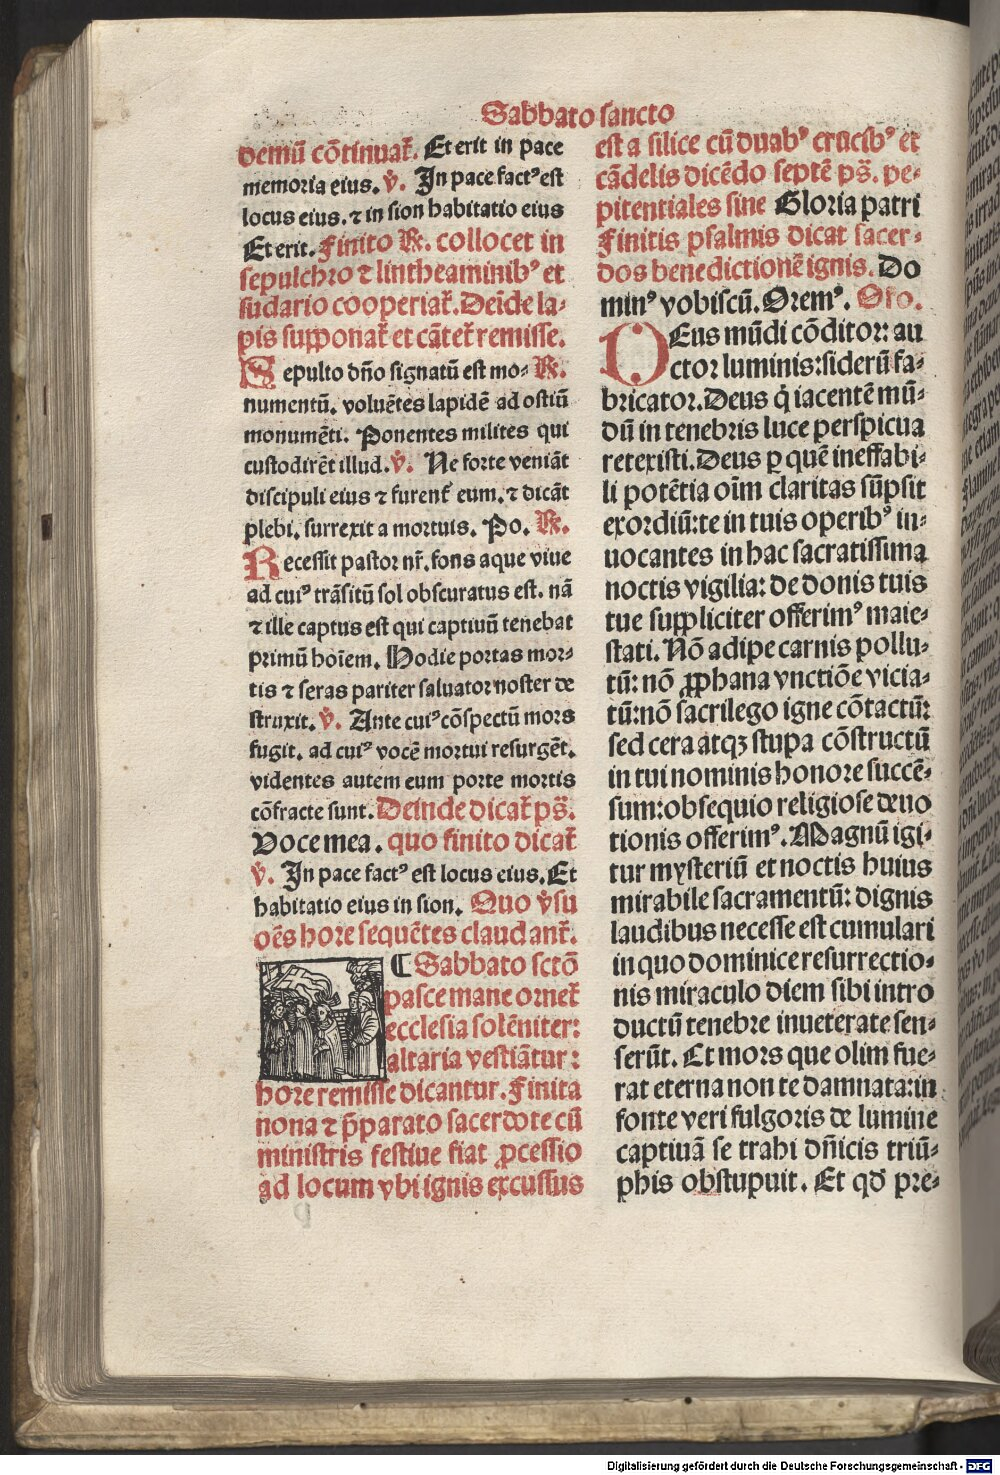 Sabbato sancto
demū cōtinuat᷑. Et erit in pace
memoria eius. ℣. In pace factꝰ est
locus eius. ⁊ in sion habitatio eius
Et erit. Finito ℟. collocet in
sepulchro ⁊ lintheaminibꝰ et
sudario cooperiat᷑. Deīde la⸗
pis supponat᷑ et cātet᷑ remisse.
Sepulto dn̄o signatū est mo⸗ ℟.
numentū. voluētes lapidē ad ostiū
monumēti. Ponentes milites qui
custodirēt illud. ℣. Ne forte veniāt
discipuli eius ⁊ furent᷑ eum. ⁊ dicāt
plebi. surrexit a mortuis. Po. ℟.
Recessit pastor nr̄. fons aque viue
ad cuiꝰ trāsitū sol obscuratus est. nā
⁊ ille captus est qui captiuū tenebat
primū hoīem. Hodie portas mor⸗
tis ⁊ seras pariter saluator noster de
struxit. ℣. Ante cuiꝰ cōspectū mors
fugit. ad cuiꝰ vocē mortui resurgēt.
videntes autem eum porte mortis
cōfracte sunt. Deinde dicat᷑ ps̄.
Voce mea. quo finito dicat᷑
℣. In pace factꝰ est locus eius. Et
habitatio eius in sion. Quo v̓su
oēs hore sequētes claudant᷑.
⸿ Sabbato sctō
pasce mane ornet᷑
ecclesia solēniter:
altaria vestiātur:
hore remisse dicantur. Finita
nona ⁊ p̄parato sacerdote cū
ministris festiue fiat ꝓcessio
ad locum vbi ignis excussus
est a silice cū duabꝰ crucibꝰ et
cādelis dicēdo septē ps̄. pe⸗
pitentiales sine Gloria patri
Finitis psalmis dicat sacer⸗
dos benedictionē ignis. Do
minꝰ vobiscū. Oremꝰ. Oro.
DEus mūdi cōditor: au
ctor luminis: siderū fa⸗
bricator. Deus q̇ iacentē mū⸗
dū in tenebris luce perspicua
retexisti. Deus ꝑ quē ineffabi⸗
li potētia oīm claritas sūpsit
exordiū: te in tuis operibꝰ in⸗
uocantes in hac sacratissima
noctis vigilia: de donis tuis
tue suppliciter offerimꝰ maie⸗
stati. Nō adipe carnis pollu⸗
tū: nō ꝓphana vnctiōe vicia⸗
tū: nō sacrilego igne cōtactū:
sed cera atqꝫ stupa cōstructū
in tui nominis honore succē⸗
sum: obsequio religiose deuo
tionis offerimꝰ. Magnū igi⸗
tur mysteriū et noctis huius
mirabile sacramentū: dignis
laudibus necesse est cumulari
in quo dominice resurrectio⸗
nis miraculo diem sibi intro
ductū tenebre inueterate sen⸗
serūt. Et mors que olim fue⸗
rat eterna non te damnata: in
fonte veri fulgoris de lumine
captiuā se trahi dn̄icis triū⸗
phis obstupuit. Et qd̄ pre⸗
Digitalisierung gefördert durch die Deutsche Forschungsgemeinschaft - DFG